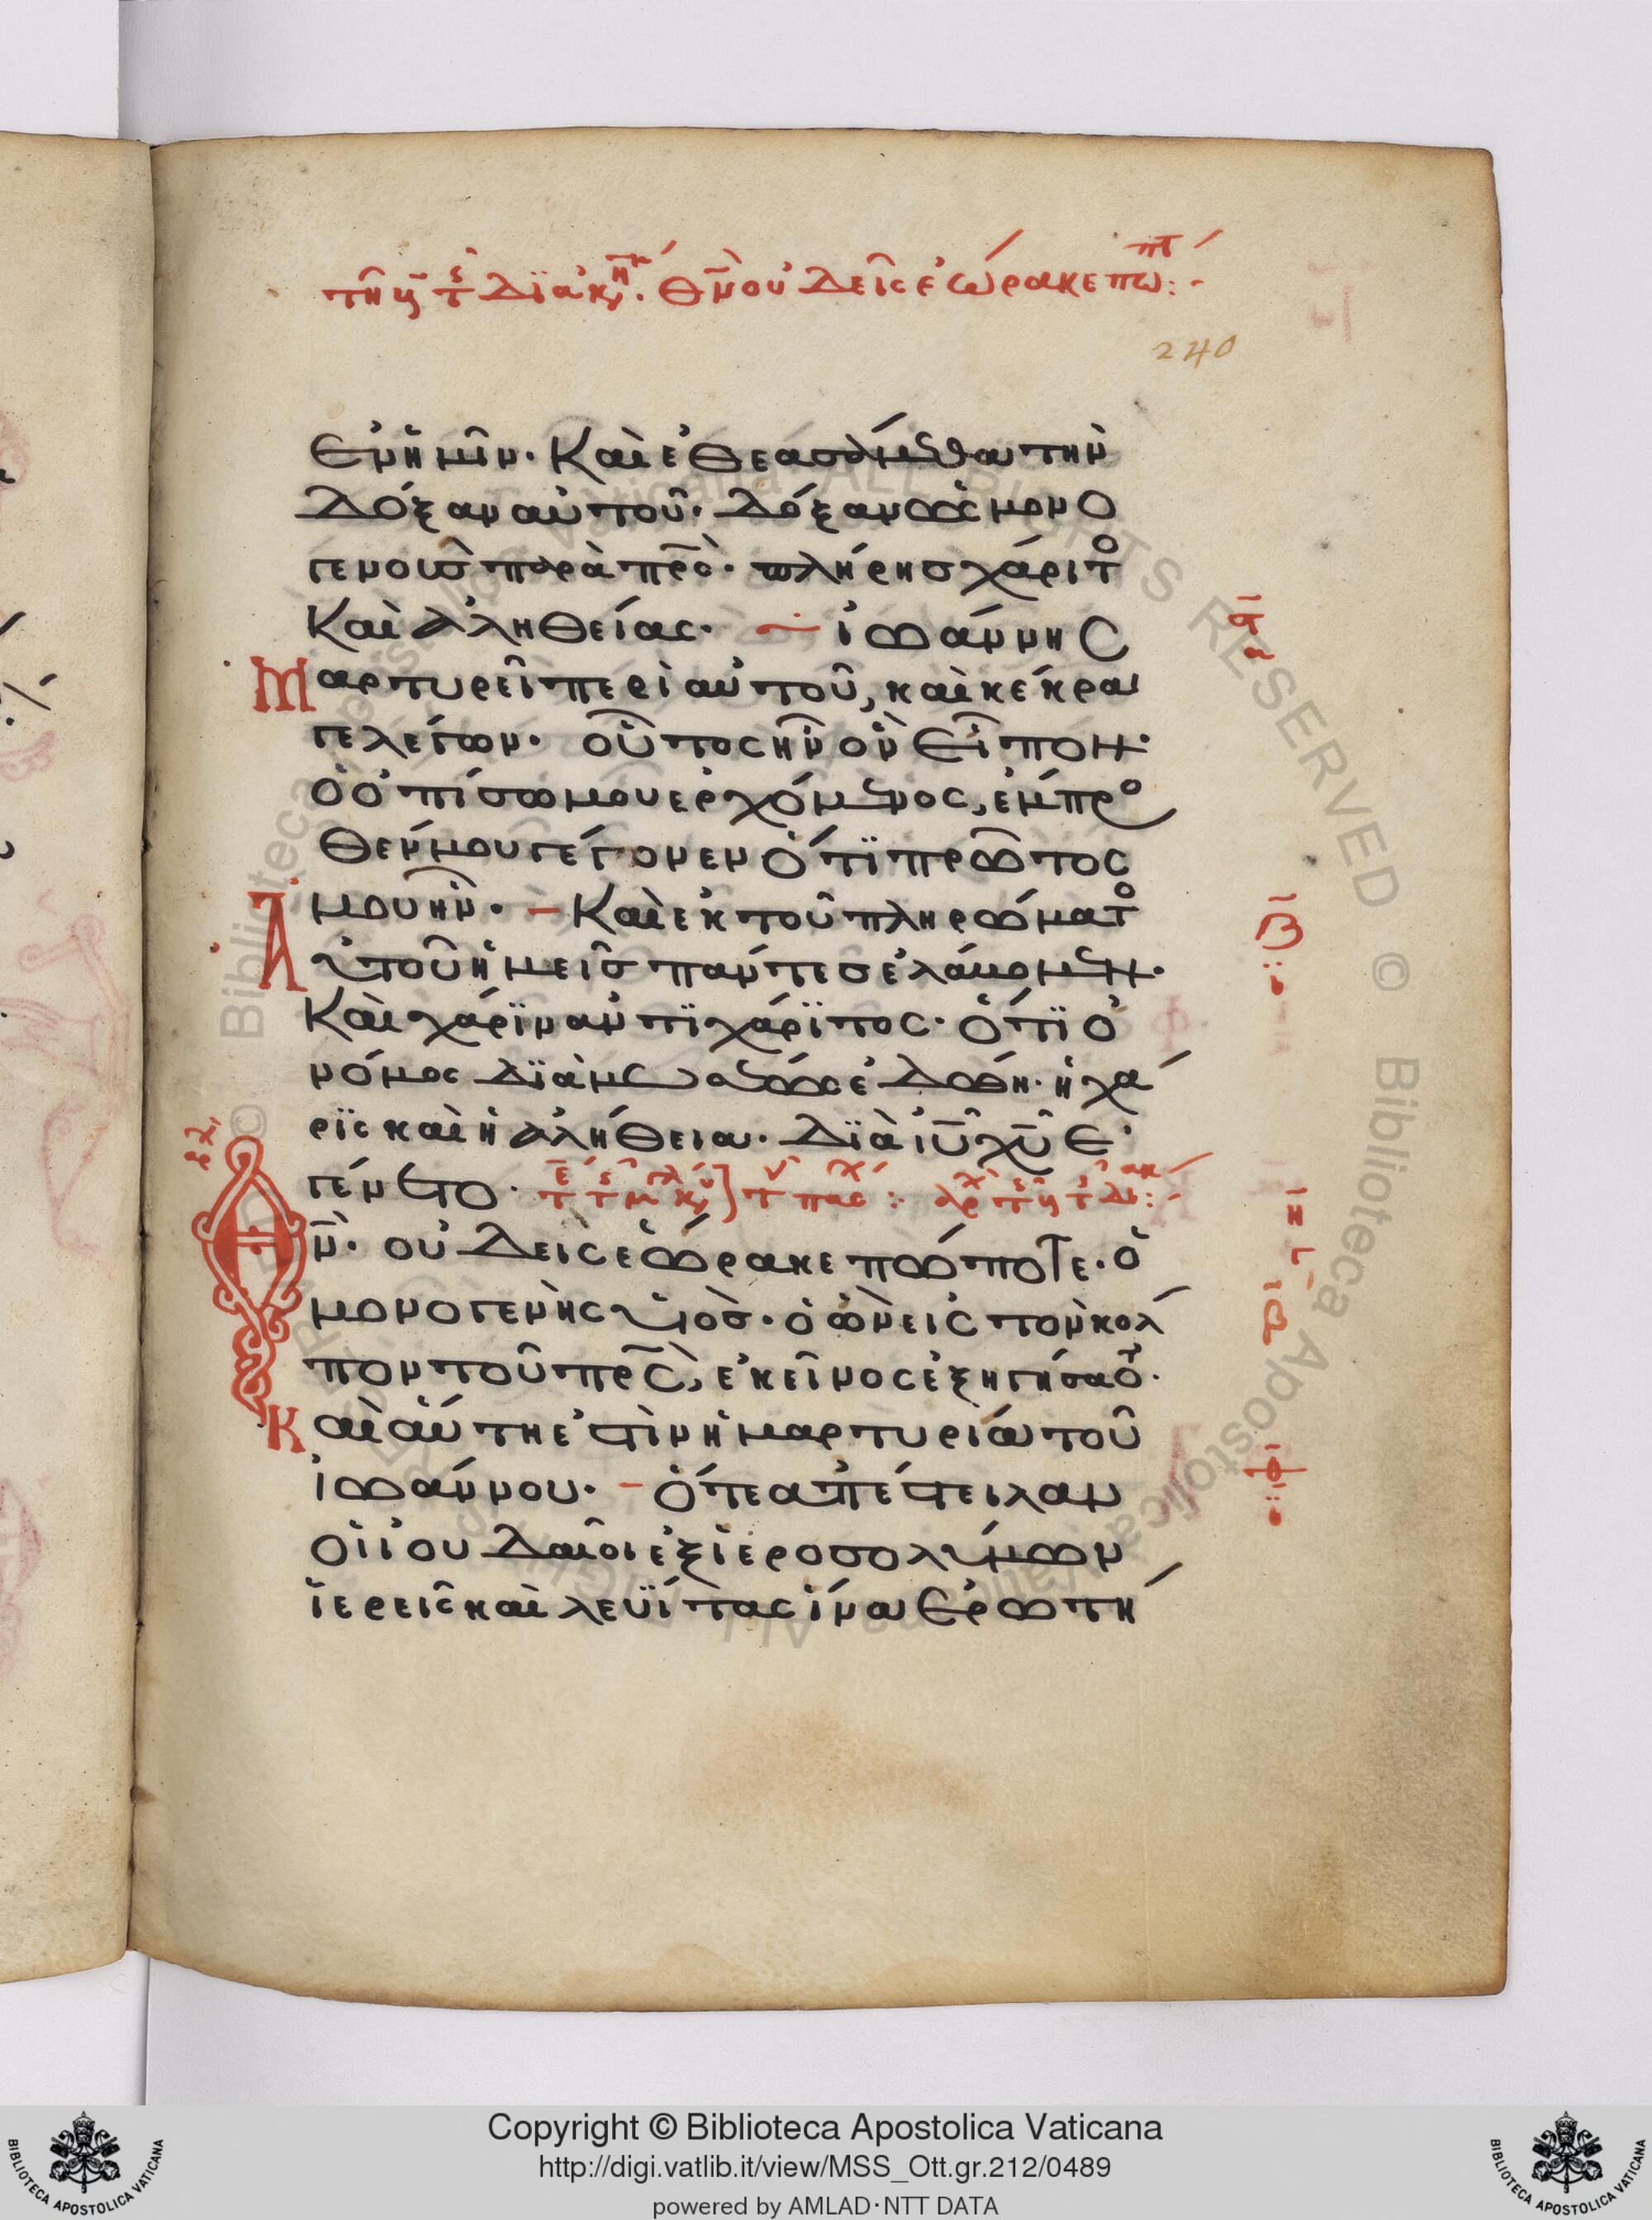 τῆ β τ διακ. Θν ουδεὶς εώρακε πω:-
240
ἐν ἡμῖν. Καὶ ἐθεασάμεθα τὴν
δόξαν αὐτοῦ. δόξαν ὡς μονο
γενοῦς παρὰ πρς. πλήρης χάριτο
Καὶ ἀληθείας. ἰωάννης
Μαρτυρεῖ περὶ αὐτοῦ, καὶ κέκρα
γε λέγων. οὗτος ἦν ὃν εἶπον.
ὁ ὀπίσω μου ἐρχόμενος, ἔμπρο
θέν μου γέγονεν ὅτι πρῶτος
μου ἦν. Καὶ ἐκ τοῦ πληρώματο
Αὐτοῦ ἡμεῖς πάντες ἐλάβομεν.
Καὶ χάριν ἀντὶ χάριτος. ὅτι ὁ
νόμος διὰ μωσέως ἐδόθη. ἡ χά
ρις καὶ ἡ ἀλήθεια. διὰ ἰῦ χῦ ἐ
γένετο.
Θν. οὐδεὶς ἑώρακε πώποτε. ὁ
μονογενὴς υἱὸς. ὁ ὢν εἰς τὸν κόλ
πον τοῦ πρς, ἐκεῖνος ἐξηγήσατο.
Καὶ αὕτη ἐστὶν ἡ μαρτυρία τοῦ
ἰωάννου. ὅτε ἀπέστειλαν
οἱ ἰουδαῖοι ἐξ ἱεροσολύμων
ἱερεῖς καὶ λευΐτας ἵνα ἐρωτή
Copyright © Biblioteca Apostolica Vaticana
http://digi.vatlib.it/view/MSS_Ott.gr.212/0489
powered by AMLAD·NTT DATA